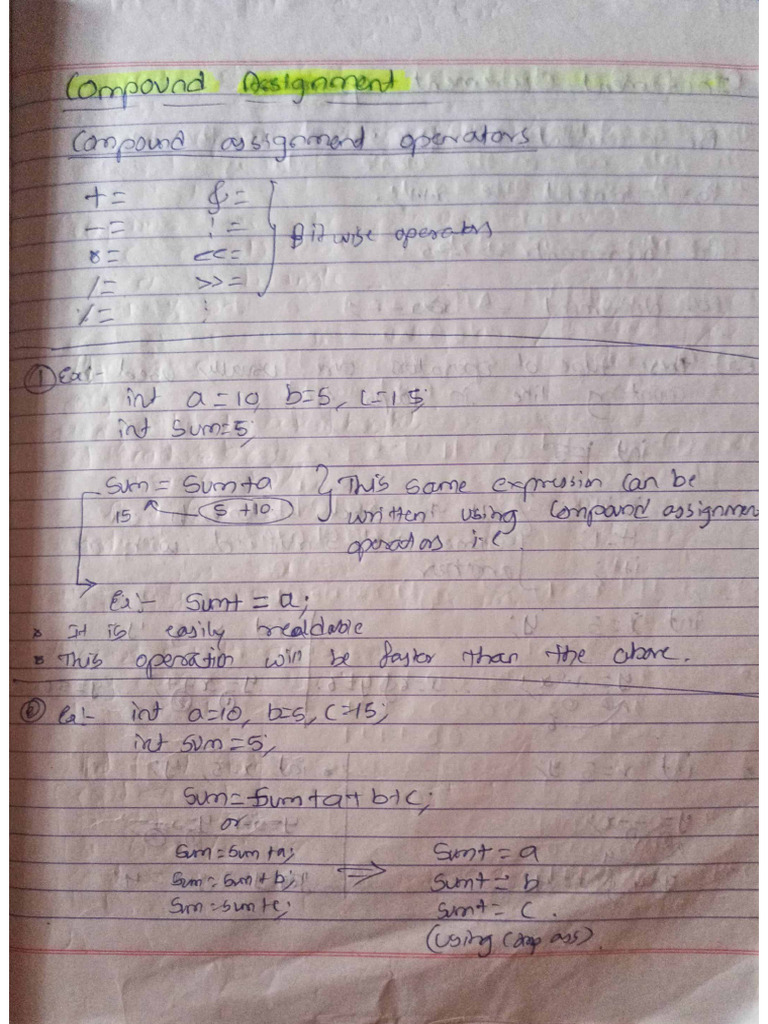 Compound Assignment
Compound assignment operators
+= &=
-= |=
*= <<= Bitwise operators
/= >>=
%= :
① Ex:-
int a=10, b=5, c=15;
int sum=5;
sum = sum+a } This same expression can be
15 5+10 written using Compound assignmen
operators i.e.
Ex:- sum+=a;
* It is easily breakdable
* This operation will be faster than the above.
② Ex:- int a=10, b=5, c=15;
int sum=5;
sum=sum+a+b+c;
or
sum=sum+a; ⇒ sum+=a
sum=sum+b; sum+=b
sum=sum+c; sum+=c.
(using comp ass).